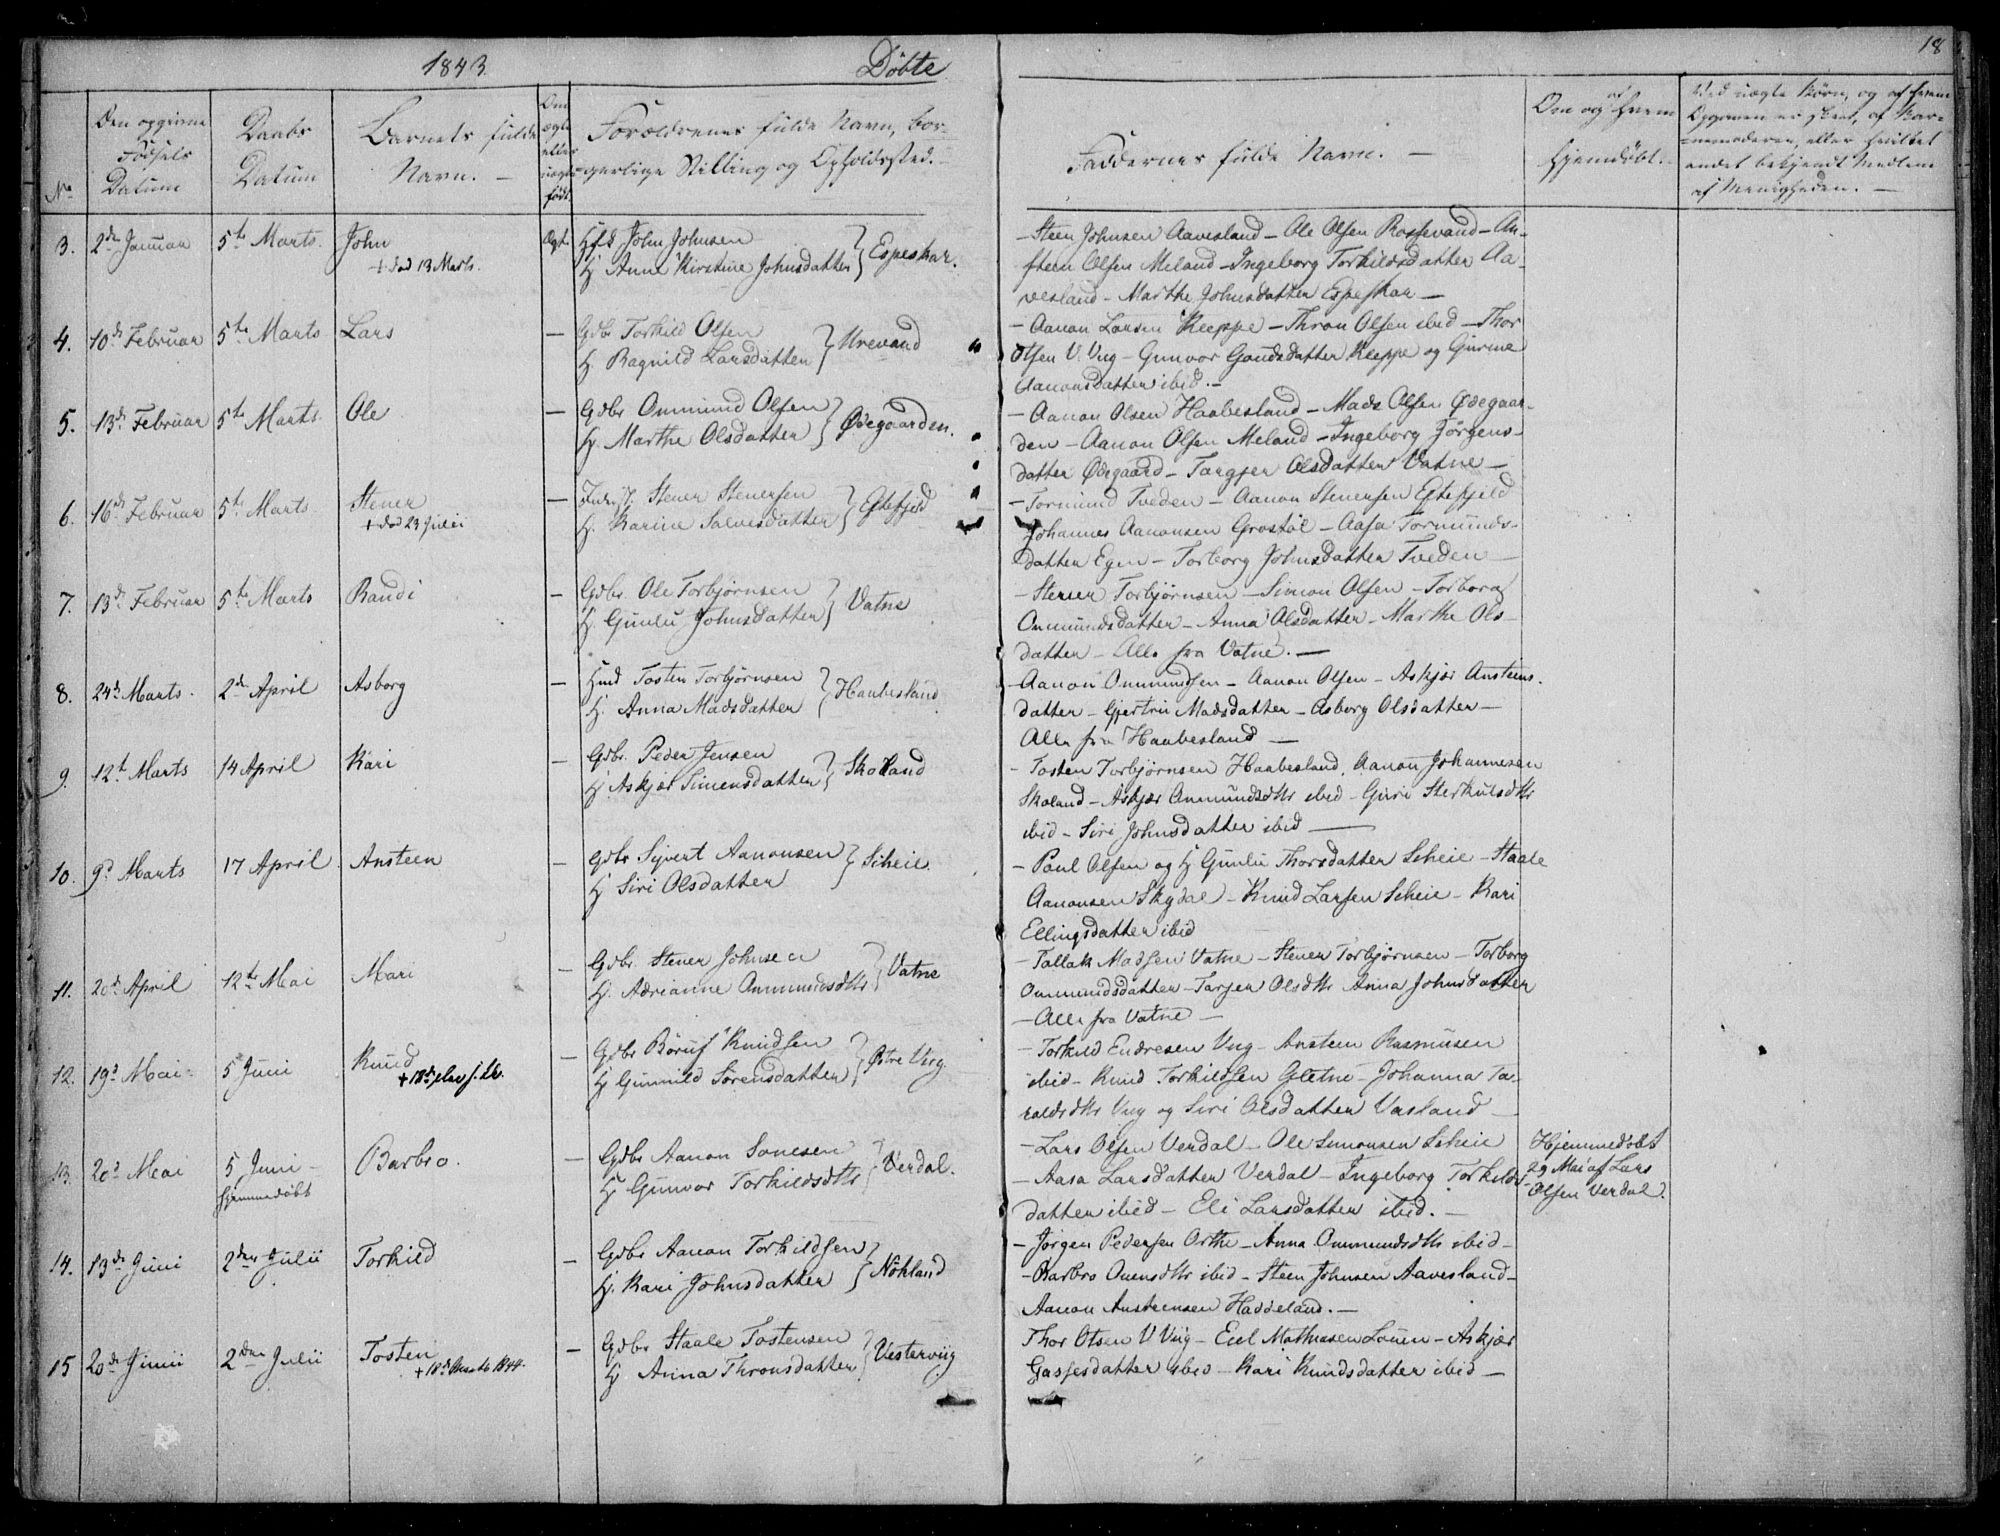 1843.
Döbte
18
No
Den opgivne Fødsels Datum
Daabs Datum
Barnets fulde Navn. —
Om ægte eller uægte født.
Forældrenes fulde Navn, borgerlige Stilling og Opholdssted. —
Faddernes fulde Navn. —
Om og af hvem hjemdøbt. —
Ved uægte Børn, og af hvem
Opgaven er skeet, af Bar-
nemoderen, eller hvilket
andet bekjendt Medlem
af Menigheden. —
3. 2den Januar 5te Marts. John
+ död 13 Marts.
Ægt.
John Johnsen
H Anne Kirstine Johnsdatter } Espeskar.
— Steen Johnsen Aavesland — Ole Olsen Rossevand — An-
steen Olsen Meland — Ingeborg Torkildsdatter Aa-
vesland — Marthe Johnsdatter Espeskar —
4. 10de Februar 5te Marts Lars —
Gdbr Torkild Olsen
H. Ragnild Larsdatter } Urevand
— Aanon Larsen Kleppe — Thron Olsen ibid — Thor
Olsen V. Vug — Gunvor Gaudsdatter Kleppe og Gurine
Aanonsdatter ibid. —
5. 13de Februar 5te Marts Ole —
Gdbr Ommund Olsen
H. Marthe Olsdatter } Ødegaarden.
— Aanon Olsen Haabesland — Mads Olsen Ødegaar-
den — Aanon Olsen Meland — Ingeborg Jörgens-
datter Ødegaard — Targjer Olsdatter Vatne —
6. 16de Februar 5te Marts Stener
+ död 23 Julii
—
Stener Stenersen
H. Karine Salvesdatter } Eftefjeld
— Tormund Tveden — Aanon Stenersen Eftefjeld
Johannes Aanonsen Grostöl — Aasa Tormunds-
datter Egen — Torborg Johnsdatter Tveden —
7. 13de Februar 5te Marts Randi —
Gdbr. Ole Torbjørnsen
H. Gunlu Johnsdatter } Vatne
— Stener Torbjörnsen — Simon Olsen — Torborg
Ommundsdatter — Anna Olsdatter — Marthe Ols-
datter — Alle fra Vatne. —
8. 24de Marts. 2den April Asborg —
Huusmd Tosten Torbjørnsen
H. Anna Madsdatter } Haabesland
— Aanon Ommundsen — Aanon Olsen — Askjær Ansteens-
datter — Gjertru Madsdatter — Asborg Olsdatter —
Alle fra Haabesland —
9. 12te Marts 14 April Kari —
Gdbr. Peder Jensen
H Askjær Simensdatter } Skoland
— Tosten Torbjørnsen Haabesland. Aanon Johannesen
Skoland — Askjær Ommundsdtr ibid — Guri Sterkulsdtr
ibid — Siri Johnsdatter ibid —
10. 9de Marts 17 April Ansteen —
Gdbr Sivert Aanonsen
H Siri Olsdatter } Scheie.
— Poul Olsen og H Gunlu Thorsdatter Scheie — Staale
Aanonsen Skydal — Knud Larsen Scheie — Kari
Ellingsdatter ibid
11. 20de April 12te Mai Mari —
Gdbr. Stener Johnsen
H. Adrianne Ommundsdtr } Vatne
— Tallak Madsen Vatne — Stener Torbjørnsen — Torborg
Ommundsdatter — Tarjer Olsdtr Anna Johnsdatter
— Alle fra Vatne —
12. 19de Mai. 5 Juni Knud
—
Gdbr Knudsen
H Gunnild Sörensdatter } Østre Vug.
— Torkild Endresen Vug — Ansteen Rasmusen
ibid — Knud Torkildsen Gletne — Johanna Ta-
raldsdtr Vug og Siri Olsdatter Vasland —
13. 20de Mai 5 Juni — Barbro. —
hjemmedøbt
Gdbr Aanon Sonesen
H Gunvor Torkildsdtr } Verdal.
— Lars Olsen Verdal — Ole Simonsen Scheie
— Aasa Larsdatter Verdal — Ingeborg Torkilds-
datter ibid — Eli Larsdatter ibid. —
Hjemmedöbt
29 Mai af Lars
Olsen Verdal.
14. 13de Juni 2den Julii Torkild —
Gdbr Aanon Torkildsen
H. Kari Johnsdatter } Nökland
— Jörgen Pedersen Orthe — Anna Ommundsdtr ibid —
— Barbro Ovensdtr ibid — Steen Johnsen Aavesland —
Aanon Ansteensen Haddeland. —
15 20de Junii 2den Julii Tosten
+ 18de Marts 1844.
—
Gdbr Staale Tostensen
H Anna Thronsdatter } Vestervug
Thor Olsen V Vug — Mathiasen Louen — Askjær
Gasjesdatter ibid — Kari Knudsdatter ibid —